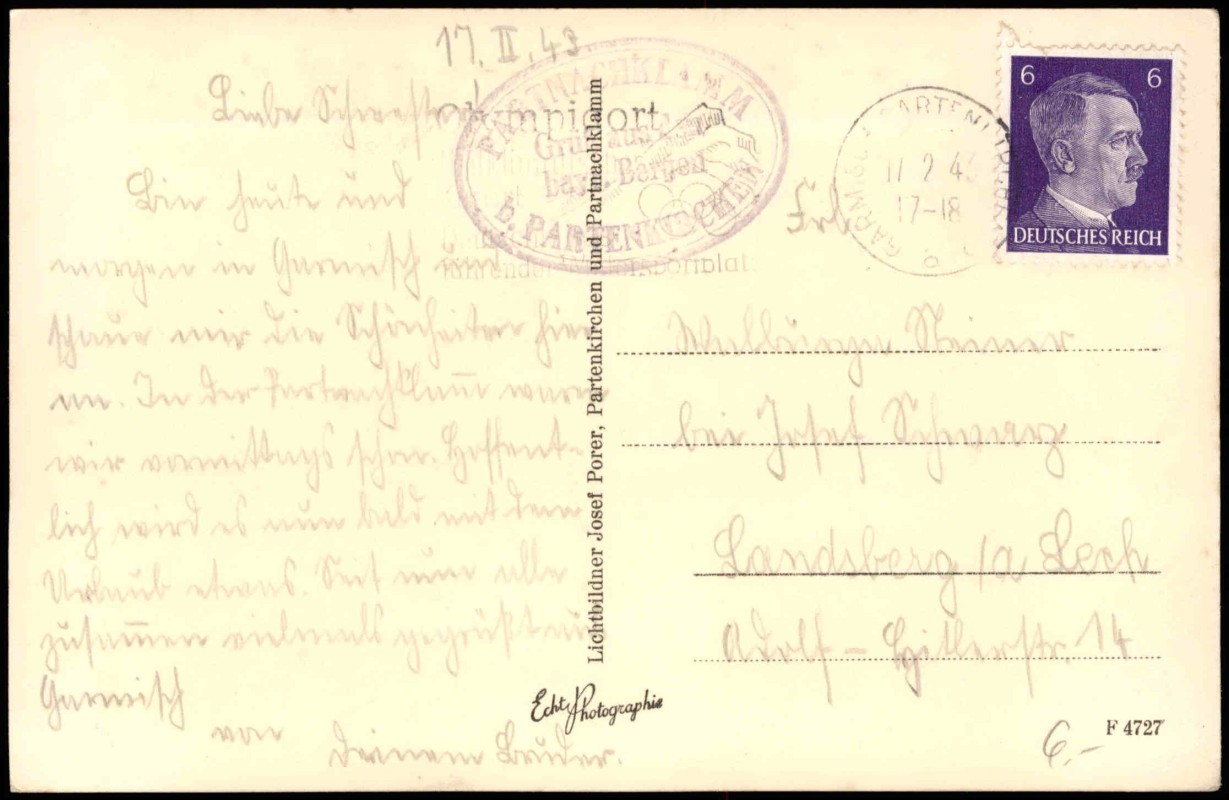 17. II. 43
Liebe Schwester!
Bin heute und
morgen in Garmisch und
schaue mir die Schönheiten hier
an. In der Partnachklamm waren
wir vormittags schon. Hoffent-
lich wird es nun bald mit dem
Urlaub etwas. Seit nun alle
zusammen vielmals gegrüßt aus
Garmisch
von
Deinem Bruder.
PARTNACHKLAMM
Gruß aus
bayr. Bergen
b. PARTENKIRCHEN
Olympiaort
führender Wintersportplatz
Lichtbildner Josef Porer, Partenkirchen und Partnachklamm
Echte Photographie
GARMISCH-PARTENKIRCHEN
17 2 43
17-18
6 6
DEUTSCHES REICH
Frl.
Steiner
bei Josef Schwarz
Landsberg /a Lech
Adolf-Hitlerstr. 14
6.-
F 4727